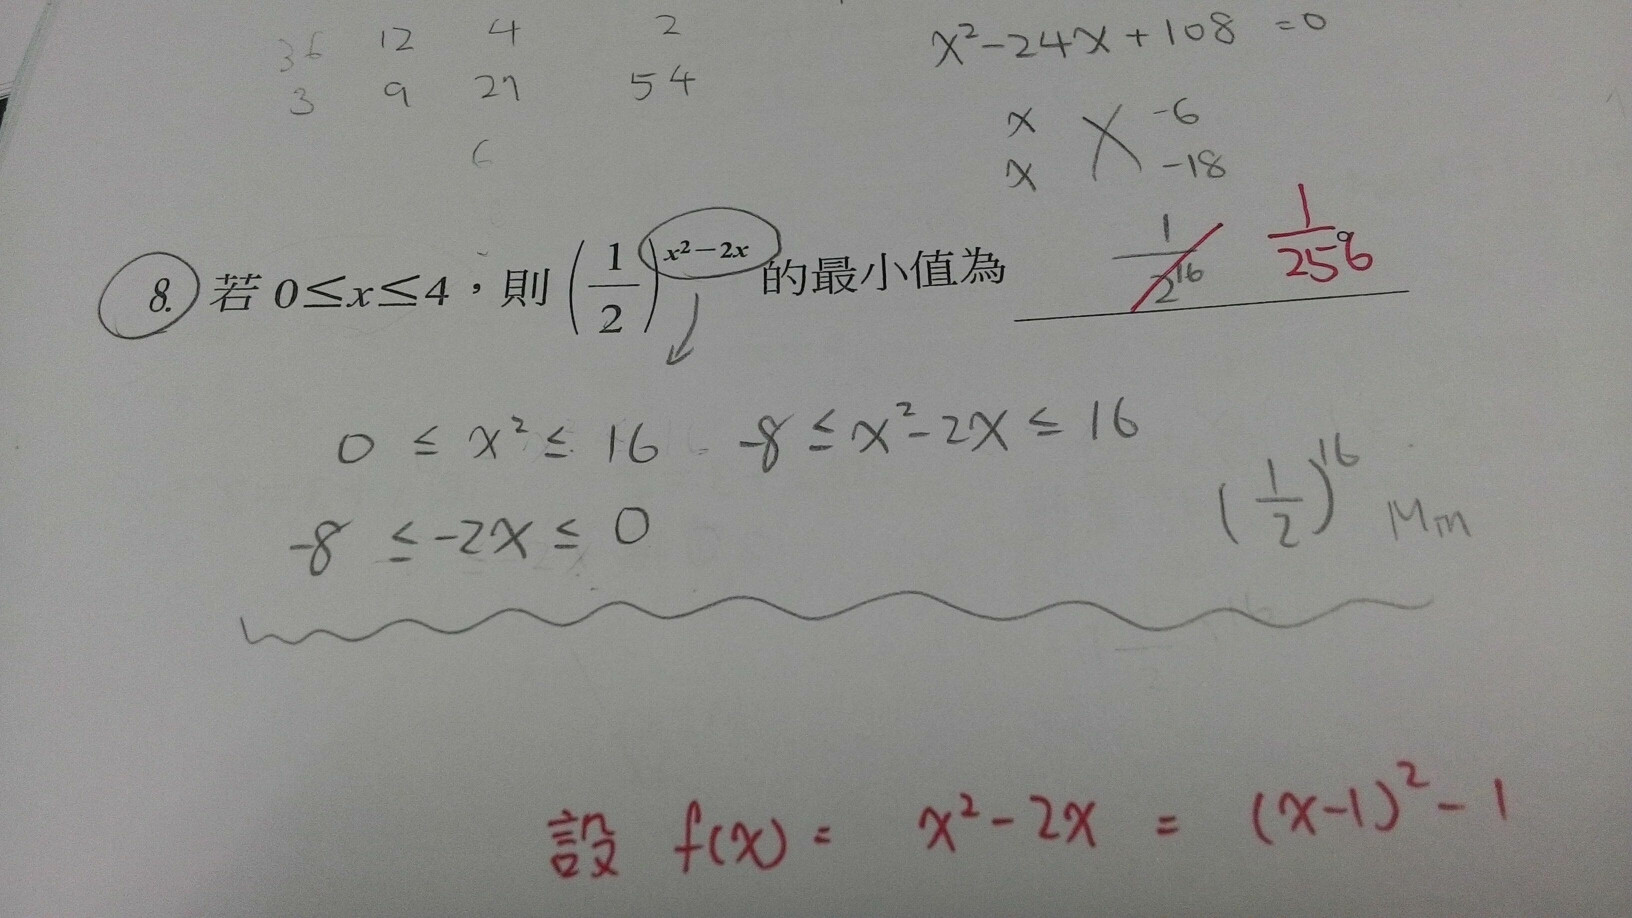 36 12 4 2
3 9 27 54
6
x²-24x+108 =0
x -6
x -18
8. 若 0≤x≤4，則 (1/2)^(x²-2x) 的最小值為 1/2¹⁶ 1/256
0 ≤ x² ≤ 16 -8 ≤ x²-2x ≤ 16
-8 ≤ -2x ≤ 0
(1/2)¹⁶ Min
設 f(x) = x²-2x = (x-1)²-1